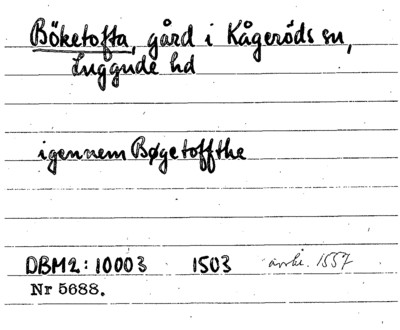 Böketofta, gård i Kågeröds sn,
Luggude hd
igennem Bøgetoffthe
DBM2: 10003 1503 avskr. 1557
Nr 5688.